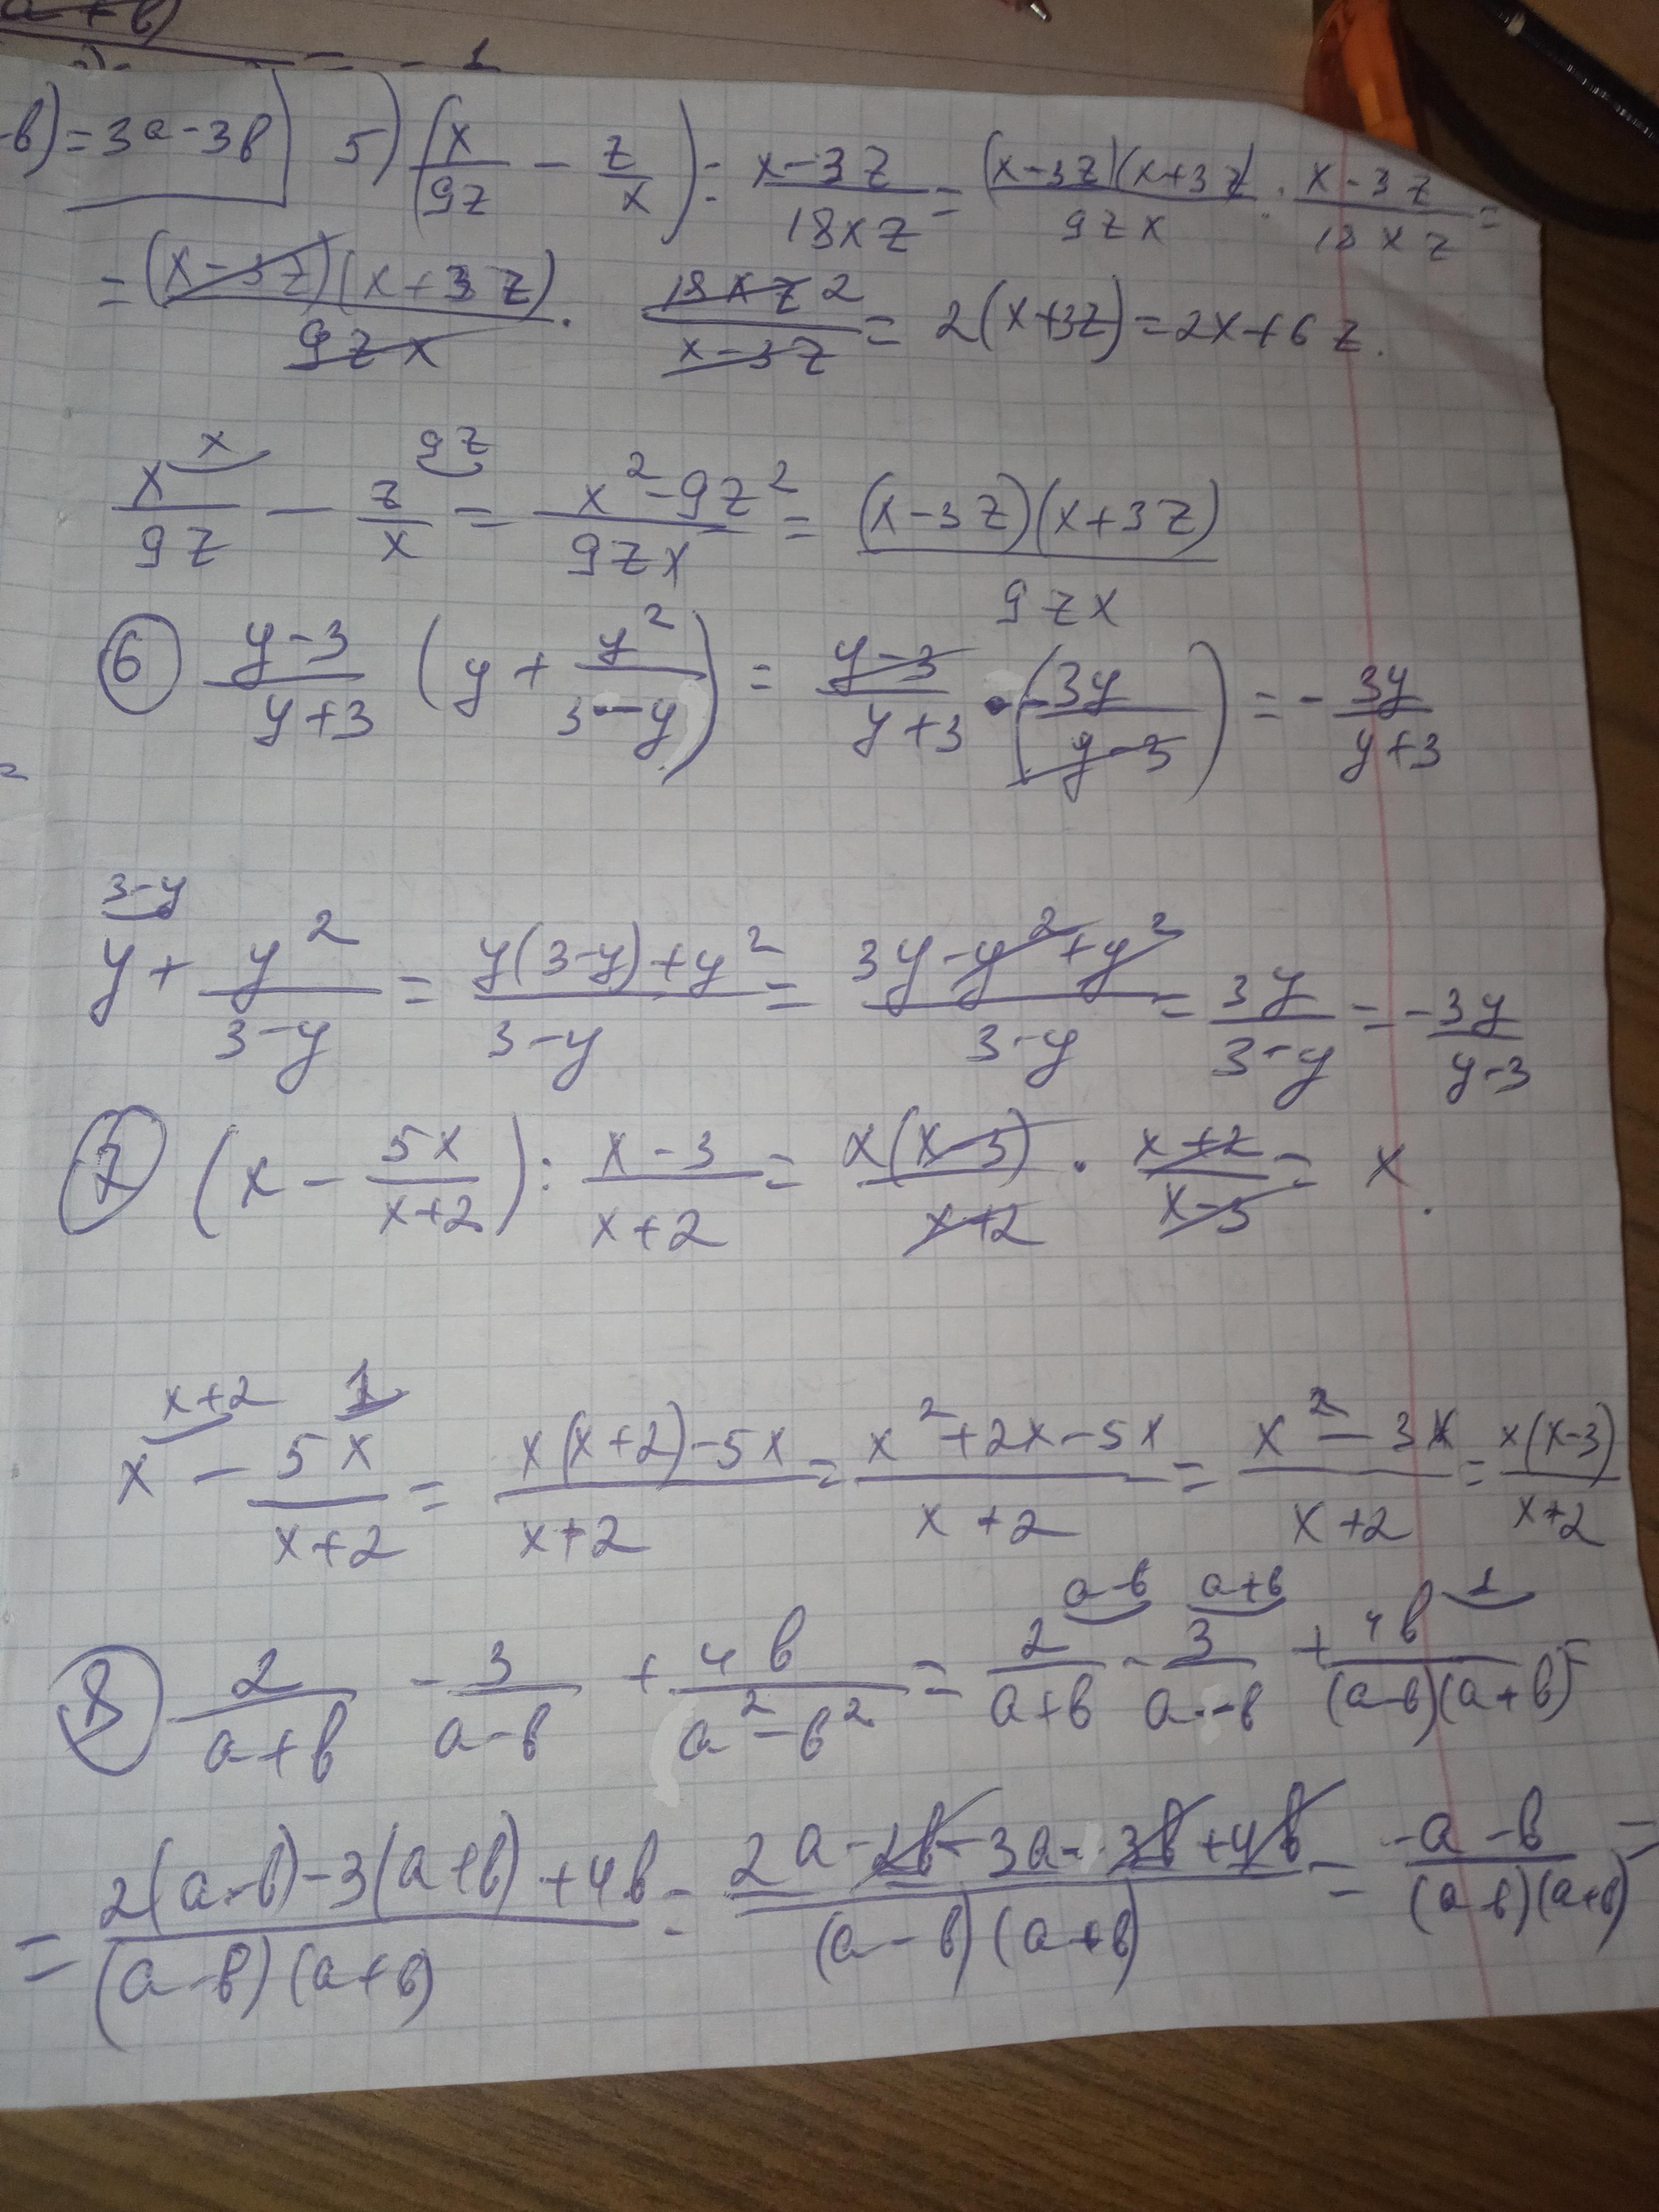 a+b)
= - 1
-b) = 3a-3b  5) (x/9z - z/x) : (x-3z)/(18xz) = (x-3z)(x+3z)/(9zx) : (x-3z)/(18xz) =
= (x-3z)(x+3z)/(9zx) · 18xz 2/(x-3z) = 2(x+3z) = 2x+6z.
x 9z
x/9z - z/x = (x²-9z²)/(9zx) = (x-3z)(x+3z)/(9zx)
6 (y-3)/(y+3) (y + y²/(3-y)) = (y-3)/(y+3) · (-3y/(y-3)) = - 3y/(y+3)
=
3-y
y + y²/(3-y) = (y(3-y)+y²)/(3-y) = (3y-y²+y²)/(3-y) = 3y/(3-y) = -3y/(y-3)
7 (x - 5x/(x+2)) : (x-3)/(x+2) = x(x-3)/(x+2) · (x+2)/(x-3) = x.
x+2 1
x - 5x/(x+2) = (x(x+2)-5x)/(x+2) = (x²+2x-5x)/(x+2) = (x²-3x)/(x+2) = x(x-3)/(x+2)
a-b a+b 1
8 2/(a+b) - 3/(a-b) + 4b/(a²-b²) = 2/(a+b) - 3/(a-b) + 4b/((a-b)(a+b)) =
= (2(a-b)-3(a+b)+4b)/((a-b)(a+b)) = (2a-2b-3a-3b+4b)/((a-b)(a+b)) = (-a-b)/((a-b)(a+b)) =